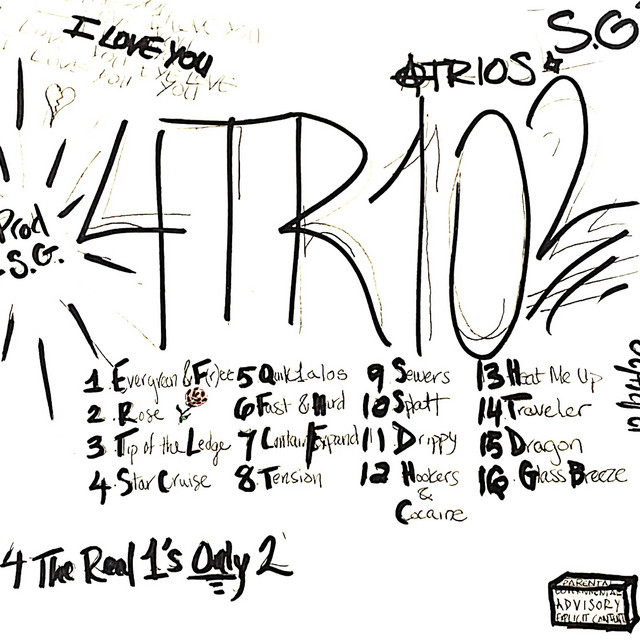 I LOVE YOU
S.G
ATRIOS
4TR102
Prod
S.G.
1 Evergreen & Fr)ee
2 Rose
3 Tip of the Ledge
4 Star Cruise
5 Quik1alos
6 Fast & Hard
7 Contain/Expand
8 Tension
9 Sewers
10 Splatt
11 Drippy
12 Hookers
&
Cocaine
13 Heat Me Up
14 Traveler
15 Dragon
16 Glass Breeze
4 The Real 1's Only 2
PARENTAL
ADVISORY
EXPLICIT CONTENT